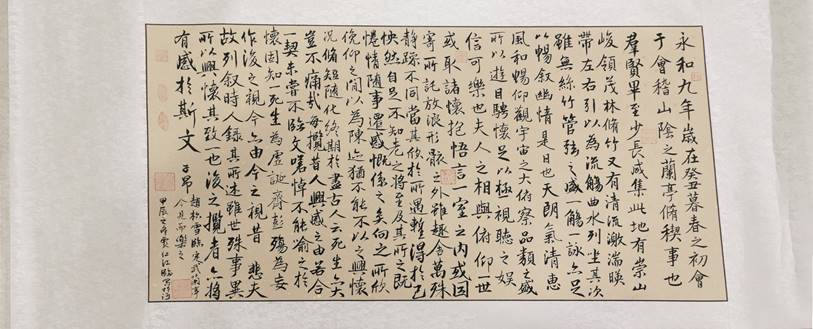 永和九年歲在癸丑暮春之初會
于會稽山陰之蘭亭脩稧事也
群賢畢至少長咸集此地有崇山
峻領茂林脩竹又有清流激湍暎
帶左右引以為流觴曲水列坐其次
雖無絲竹管弦之盛一觴一詠亦足
以暢敘幽情是日也天朗氣清惠
風和暢仰觀宇宙之大俯察品類之盛
所以遊目騁懷足以極視聽之娛
信可樂也夫人之相與俯仰一世
或取諸懷抱悟言一室之内或因
寄所託放浪形骸之外雖趣舍萬殊
静躁不同當其欣於所遇暫得於己
怏然自足不知老之將至及其所之既
惓情隨事遷感慨係之矣向之所欣
俛仰之間以為陳迹猶不能不以之興懷
况脩短隨化終期於盡古人云死生亦大矣
豈不痛哉每攬昔人興感之由若合
一契未嘗不臨文嗟悼不能喻之於
懷固知一死生為虛誕齊彭殤為妄
作後之視今亦由今之視昔 悲夫
故列敘時人錄其所述雖世殊事異
所以興懷其致一也後之攬者亦將
有感於斯文 子昂
趙松雪臨定武蘭亭
今見而樂之
甲辰